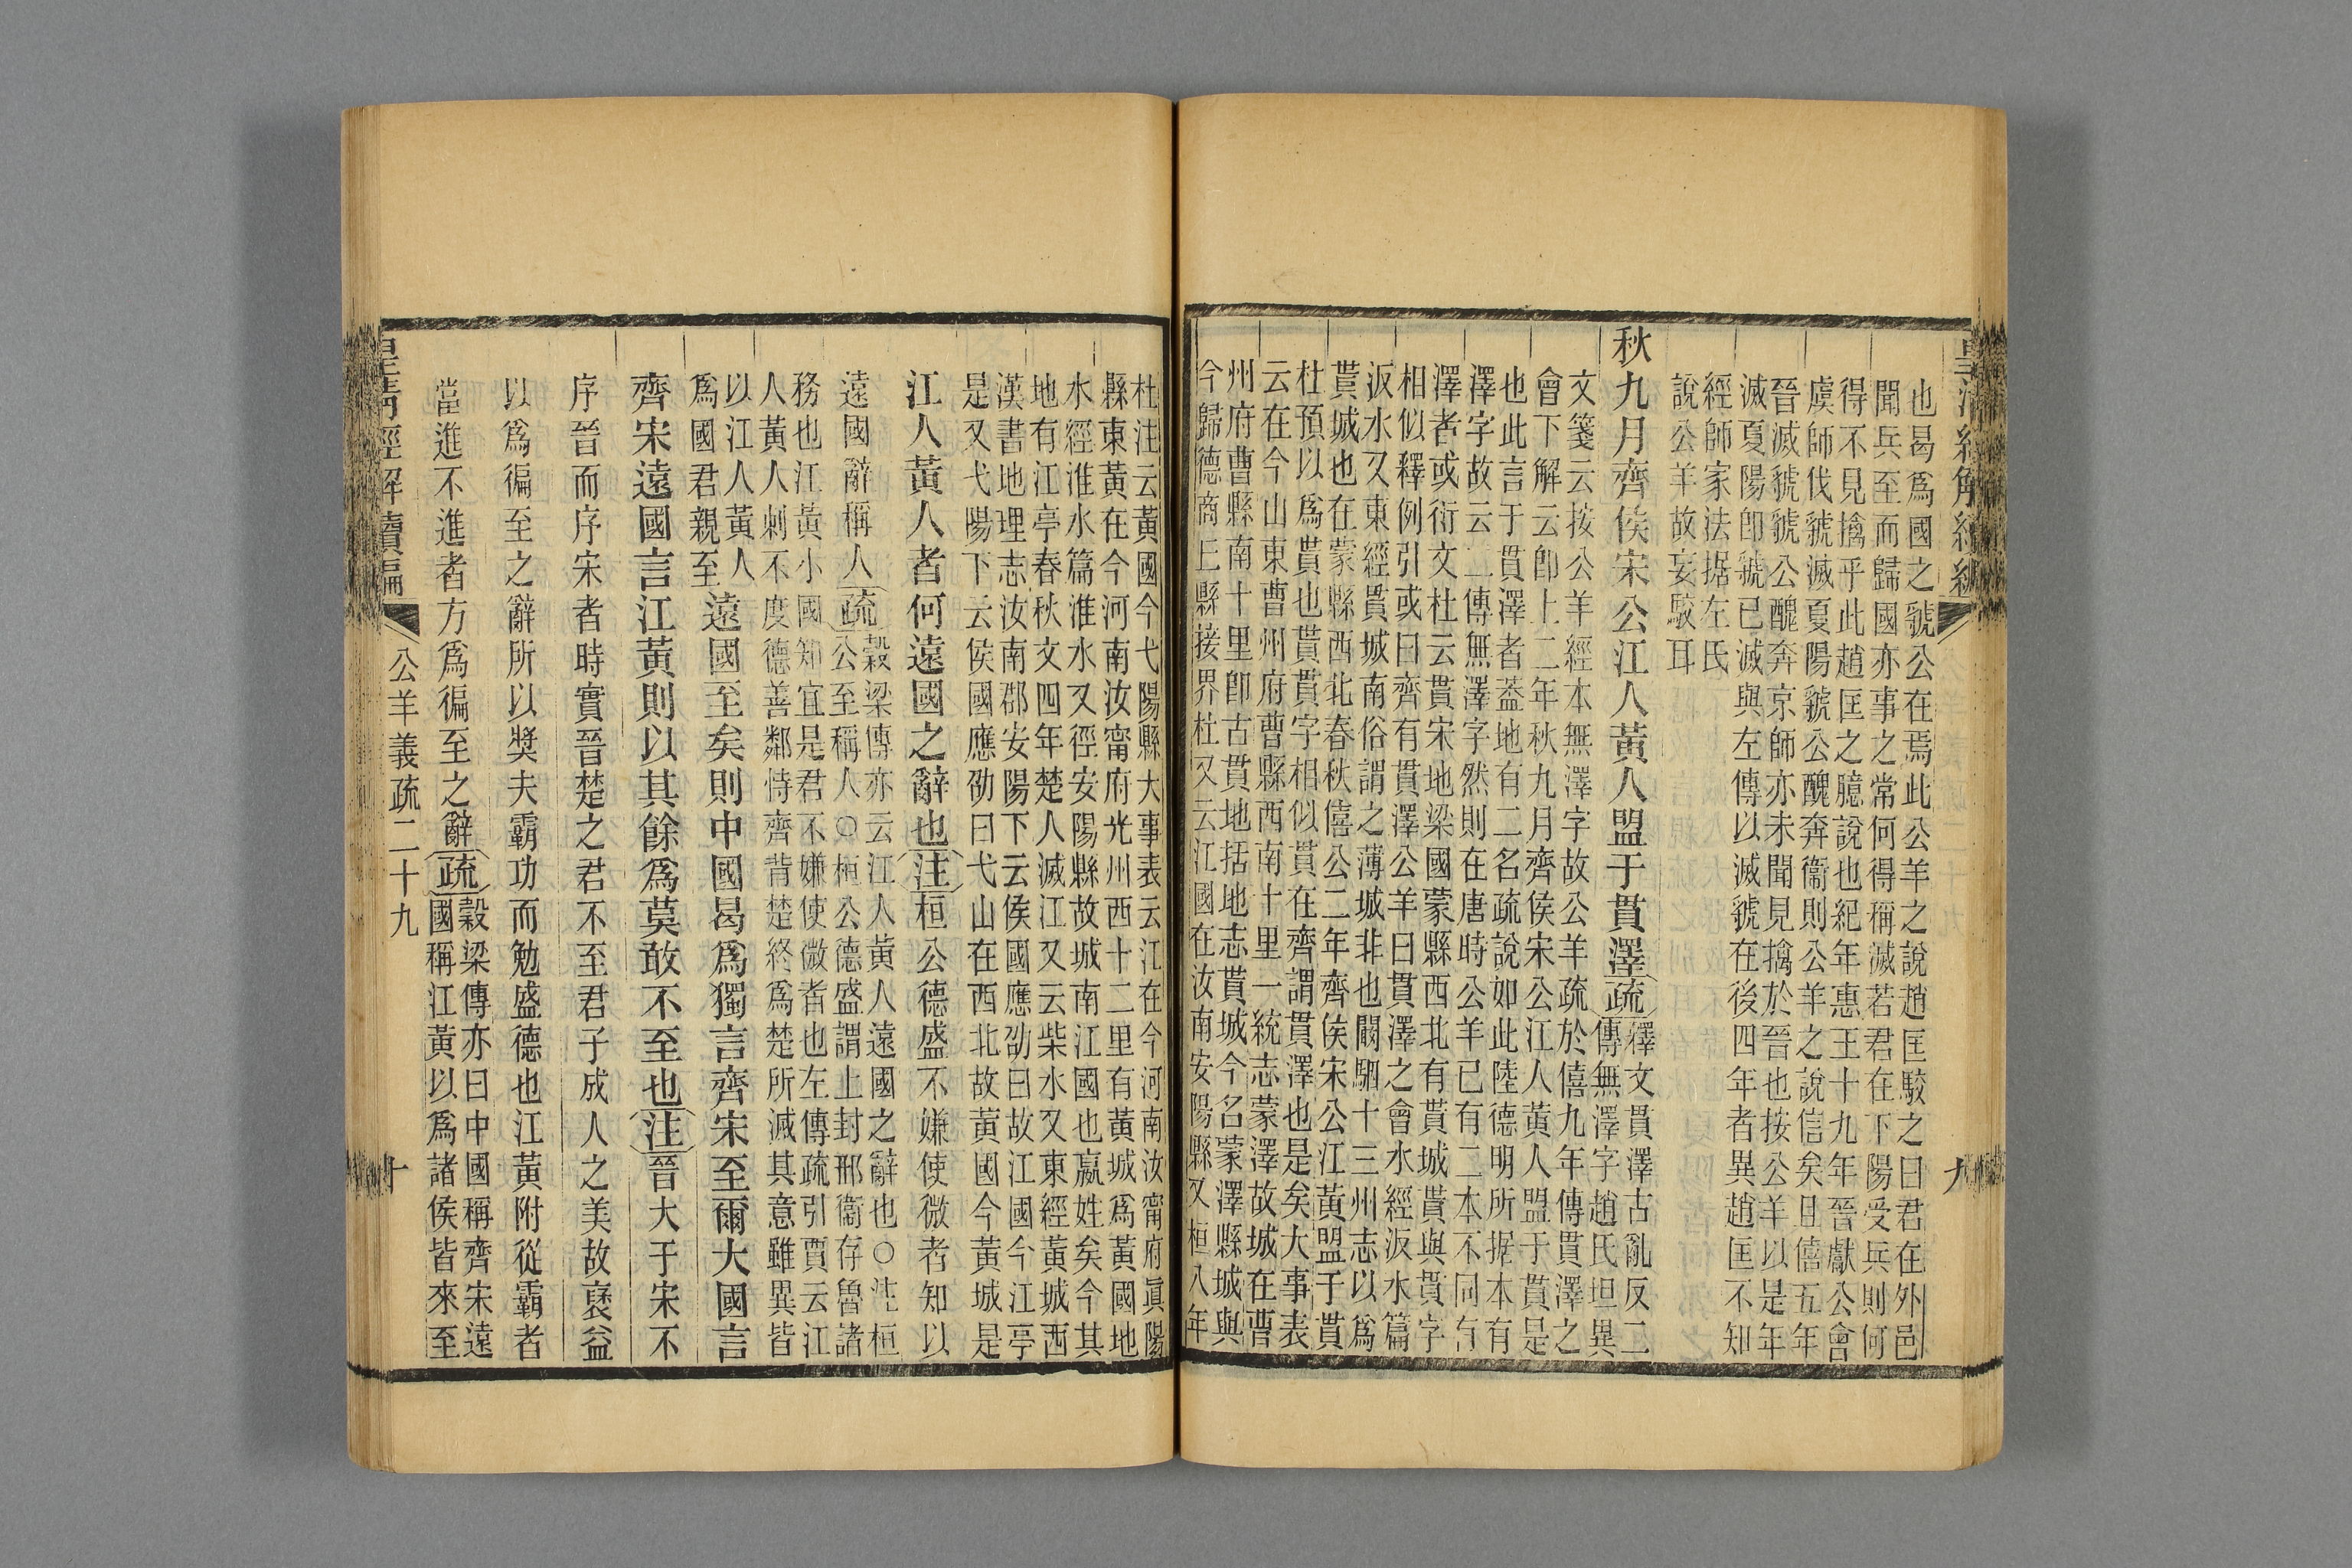 皇清經解續編
九
也曷爲國之虢公在焉此公羊之說趙匡駁之曰君在外邑
聞兵至而歸國亦事之常何得稱滅若君在下陽受兵則何
得不見擒乎此趙匡之臆說也紀年惠王十九年晉獻公會
虞師伐虢滅夏陽虢公醜奔衞則公羊之說信矣且僖五年
晉滅虢虢公醜奔京師亦未聞見擒於晉也按公羊以是年
滅夏陽卽虢已滅與左傳以滅虢在後四年者異趙匡不知
經師家法据左氏
說公羊故妄駁耳
秋九月齊侯宋公江人黃人盟于貫澤疏釋文貫澤古亂反二
傳無澤字趙氏坦異
文箋云按公羊經本無澤字故公羊疏於僖九年傳貫澤之
會下解云卽上二年秋九月齊侯宋公江人黃人盟于貫是
也此言于貫澤者蓋地有二名疏說如此陸德明所据本有
澤字故云二傳無澤字然則在唐時公羊已有二本不同有
澤者或衍文杜云貫宋地梁國蒙縣西北有貰城貰與貫字
相似釋例引或曰齊有貫澤公羊曰貫澤之會水經汳水篇
汳水又東經貫城南俗謂之薄城非也闞駰十三州志以爲
貰城也在蒙縣西北春秋僖公二年齊侯宋公江黃盟于貫
杜預以爲貰也貰貫字相似貫在齊謂貫澤也是矣大事表
云在今山東曹州府曹縣西南十里一統志蒙澤故城在曹
州府曹縣南十里卽古貫地括地志貰城今名蒙澤縣城與
今歸德商丘縣接界杜又云江國在汝南安陽縣又桓八年
杜注云黃國今弋陽縣大事表云江在今河南汝甯府眞陽
縣東黃在今河南汝甯府光州西十二里有黃城爲黃國地
水經淮水篇淮水又徑安陽縣故城南江國也嬴姓矣今其
地有江亭春秋文四年楚人滅江又云柴水又東經黃城西
漢書地理志汝南郡安陽下云侯國應劭曰故江國今江亭
是又弋陽下云侯國應劭曰弋山在西北故黃國今黃城是
江人黃人者何遠國之辭也注桓公德盛不嫌使微者知以
遠國辭稱人疏穀梁傳亦云江人黃人遠國之辭也○注桓
公至稱人○桓公德盛謂上封邢衞存魯諸
務也江黃小國知宜是君不嫌使微者也左傳疏引賈云江
人黃人刺不度德善鄰恃齊背楚終爲楚所滅其意雖異皆
以江人黃人
爲國君親至遠國至矣則中國曷爲獨言齊宋至爾大國言
齊宋遠國言江黃則以其餘爲莫敢不至也注晉大于宋不
序晉而序宋者時實晉楚之君不至君子成人之美故褒益
以爲徧至之辭所以奬夫霸功而勉盛德也江黃附從霸者
當進不進者方爲徧至之辭疏穀梁傳亦曰中國稱齊宋遠
國稱江黃以爲諸侯皆來至
皇清經解續編
公羊義疏二十九
十